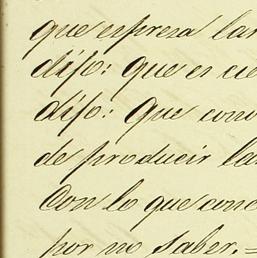 que espresa la
dijo: que es cie
dijo: Que cono
de producir la
Con lo que conc
por no saber.=